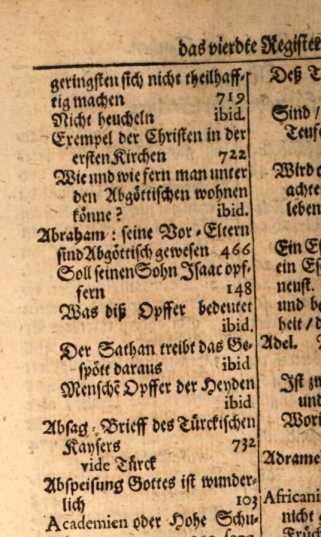 das vierdte Register
geringsten sich nicht theilhaff-
tig machen 719
Nicht heucheln ibid.
Exempel der Christen in der
ersten Kirchen 722
Wie und wie fern man unter
den Abgöttischen wohnen
könne? ibid.
Abraham: seine Vor-Eltern
sind Abgöttisch gewesen 466
Soll seinen Sohn Isaac opf-
fern 148
Was diß Opffer bedeutet
ibid.
Der Sathan treibt das Ge-
spött daraus ibid
Menschẽ Opffer der Heyden
ibid
Absag-Brieff des Türckischen
Kaysers 732
vide Türck
Abspeisung Gottes ist wunder-
lich 103
Academien oder Hohe Schu-
Deß
Sind /
Teuf
Wird
achte
leben
Ein
ein
neust.
und
heit /
Adel.
Ist
und
Wori
Adrame
Africani
nicht